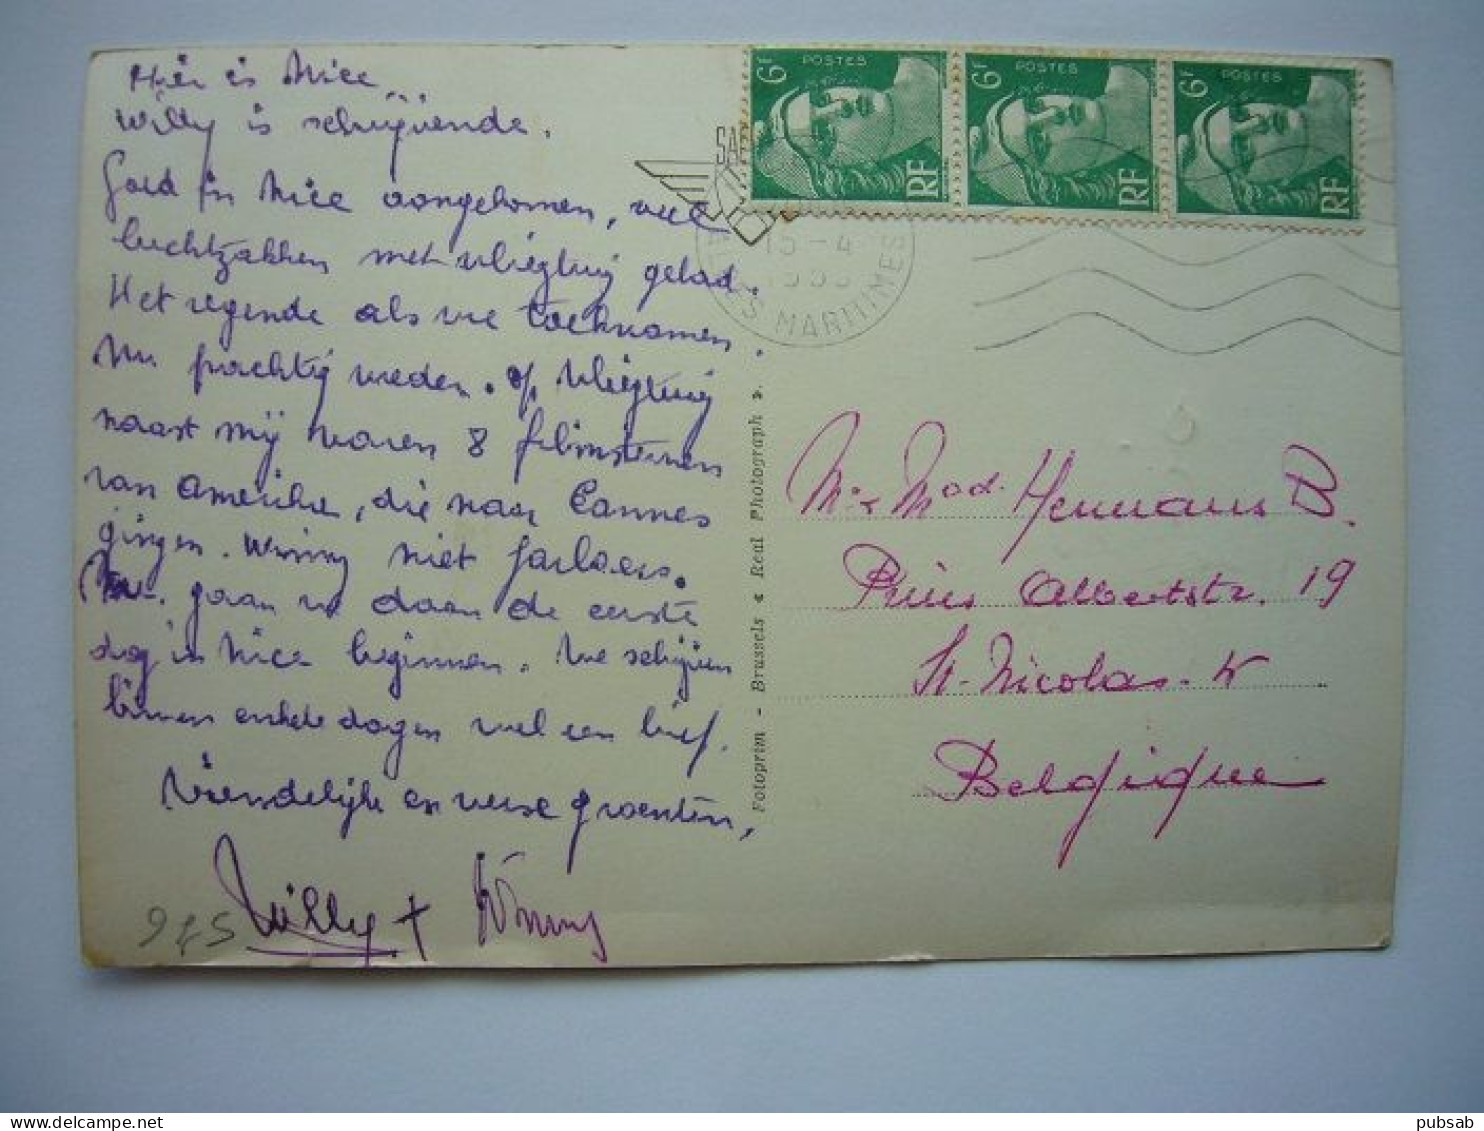 Hier is Nice
Willy is schrijvende.
Goed in Nice aangekomen, veel
luchtzakken met vliegtuig gehad.
Het regende als we toekwamen.
Nu prachtig weder. Op vliegtuig
naast mij waren 8 filmsterren
van Amerika, die naar Cannes
gingen. Winny niet jarloers.
Nu gaan we daan de eerste
dag in Nice beginnen. We schrijven
binnen enkele dagen wel een brief.
Vriendelijke en verse groenten,
Willy + Winny
975
6F POSTES RF
6F POSTES RF
6F POSTES RF
15-4
MARITIMES
Fotoprim - Brussels « Real Photograph ».
Mr & Mad. Hermans B.
Prins Albertstr. 19
St-Nicolas-W
Belgique
pubsab